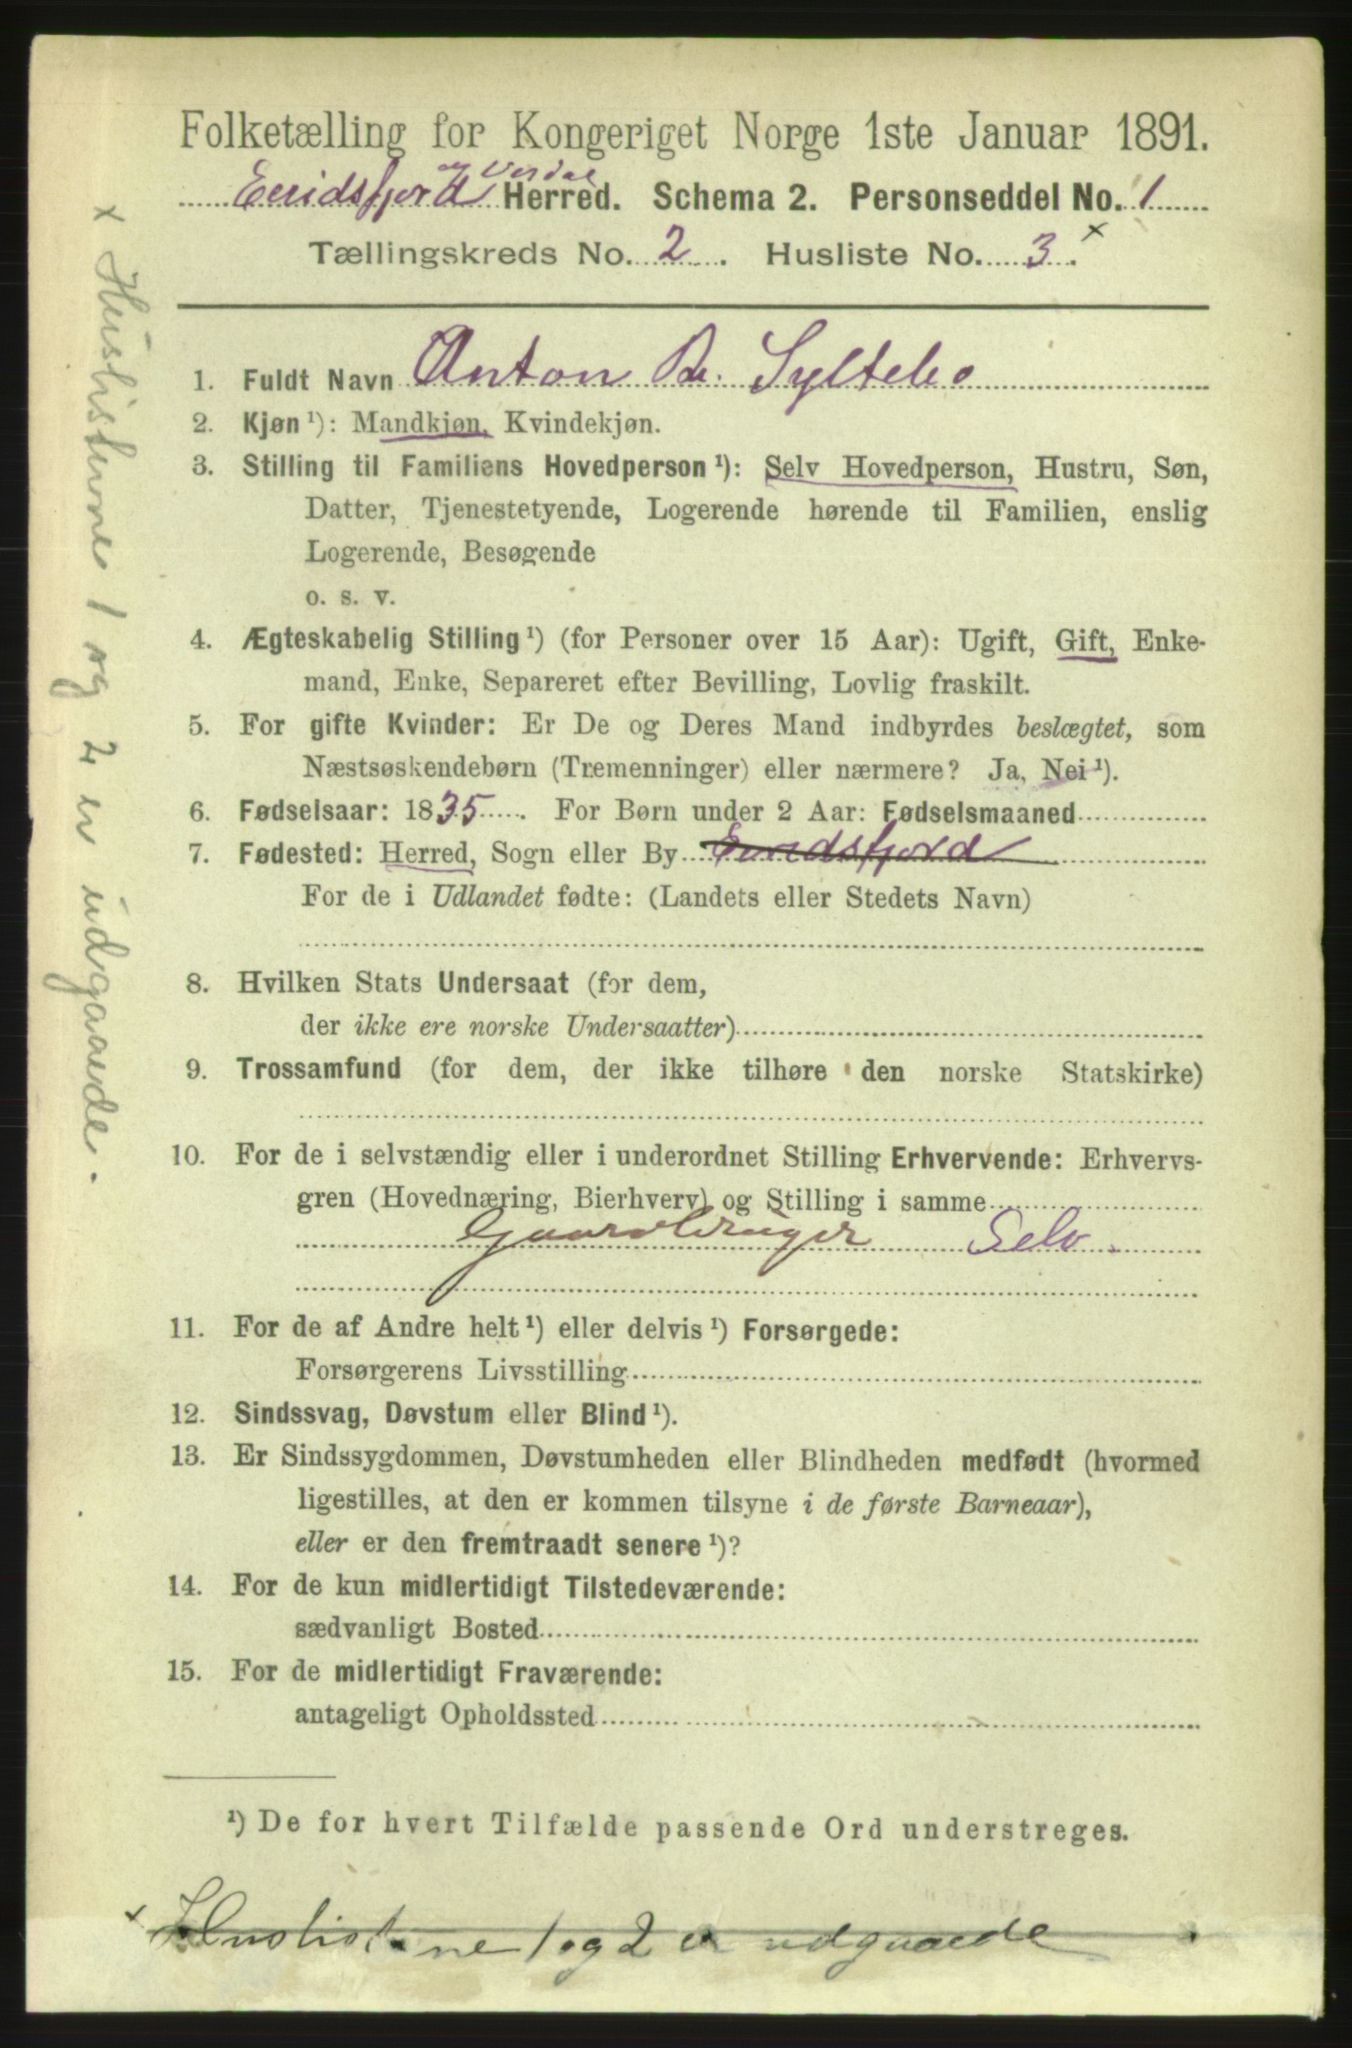 Folketælling for Kongeriget Norge 1ste Januar 1891.
Eeridsfjord og Verdal Herred. Schema 2. Personseddel No. 1
Tællingskreds No. 2. Husliste No. 3. x
1. Fuldt Navn Anton Syltebø
2. Kjøn ¹): Mandkjøn, Kvindekjøn.
3. Stilling til Familiens Hovedperson ¹): Selv Hovedperson, Hustru, Søn,
Datter, Tjenestetyende, Logerende hørende til Familien, enslig
Logerende, Besøgende
o. s. v.
4. Ægteskabelig Stilling ¹) (for Personer over 15 Aar): Ugift, Gift, Enke-
mand, Enke, Separeret efter Bevilling, Lovlig fraskilt.
5. For gifte Kvinder: Er De og Deres Mand indbyrdes beslægtet, som
Næstsøskendebørn (Tremenninger) eller nærmere? Ja, Nei ¹).
6. Fødselsaar: 1835. For Børn under 2 Aar: Fødselsmaaned
7. Fødested: Herred, Sogn eller By Eeridsfjord
For de i Udlandet fødte: (Landets eller Stedets Navn)
8. Hvilken Stats Undersaat (for dem,
der ikke ere norske Undersaatter)
9. Trossamfund (for dem, der ikke tilhøre den norske Statskirke)
10. For de i selvstændig eller i underordnet Stilling Erhvervende: Erhvervs-
gren (Hovednæring, Bierhverv) og Stilling i samme
Gaardbruger Selv.
11. For de af Andre helt ¹) eller delvis ¹) Forsørgede:
Forsørgerens Livsstilling
12. Sindssvag, Døvstum eller Blind ¹).
13. Er Sindssygdommen, Døvstumheden eller Blindheden medfødt (hvormed
ligestilles, at den er kommen tilsyne i de første Barneaar),
eller er den fremtraadt senere ¹)?
14. For de kun midlertidigt Tilstedeværende:
sædvanligt Bosted
15. For de midlertidigt Fraværende:
antageligt Opholdssted
¹) De for hvert Tilfælde passende Ord understreges.
x Huslisterne 1 og 2 er udgaaede
x Huslisterne 1 og 2 er udgaaede.